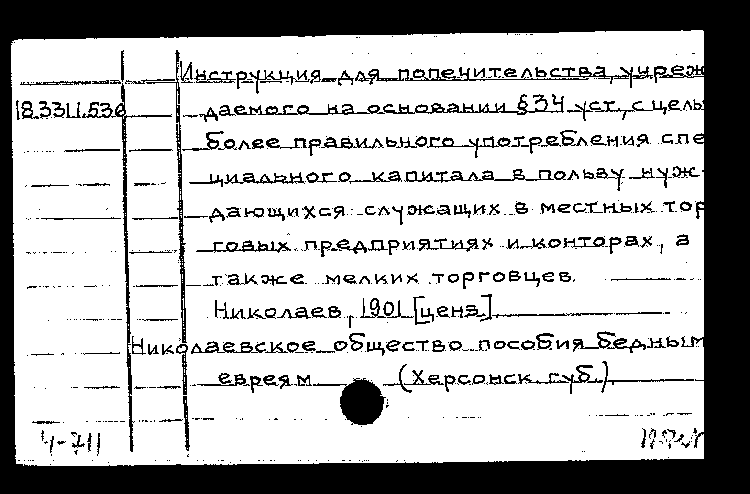 Инструкция для попечительства, учреж
18.3311.536 даемого на основании §34 уст., с цель
более правильного употребления спе
циального капитала в пользу нуж-
дающихся служащих в местных тор
говых предприятиях и конторах, а
также мелких торговцев.
Николаев, 1901 [ценз.].
Николаевское общество пособия бедным
евреям (Херсонск. губ.).
4-711